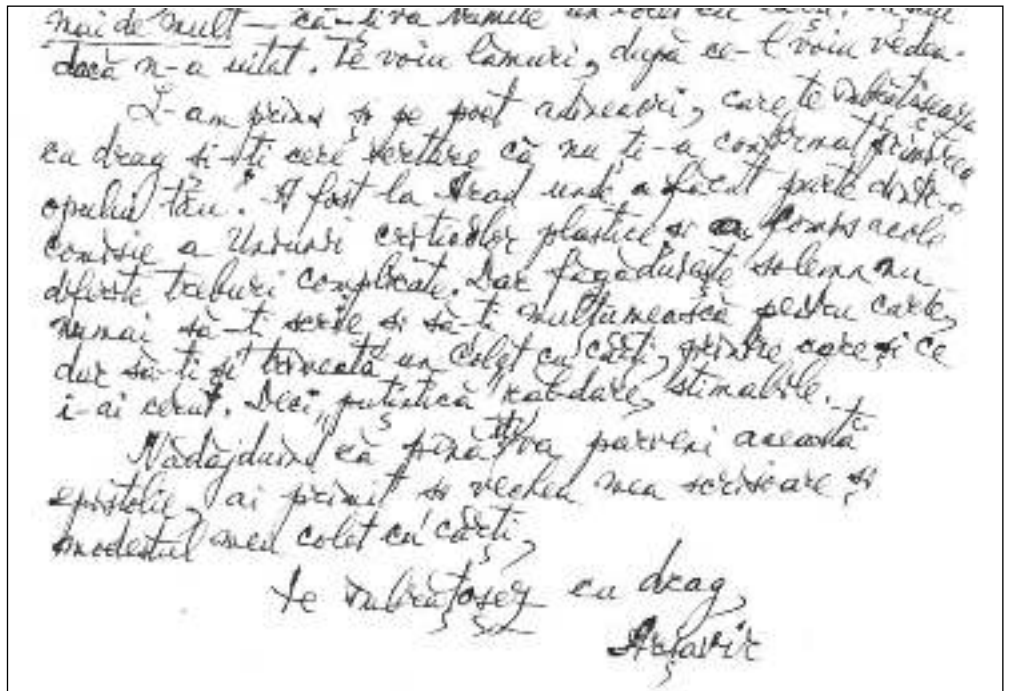 mai de mult – că-ți va trimite un colet cu cărți.
dacă n-a uitat. Te voiu lămuri, după ce-l voiu vedea.
L-am prins și pe poet adineauri, care te îmbrățișează
cu drag și-ți cere iertare că nu ți-a confirmat primirea
opului tău. A fost la Arad unde a făcut parte dintr-o
comisie a Uniunii criticilor plastici și au comis acolo
diferite treburi complicate. Dar făgăduiește solemn nu
numai să-ți scrie și să-ți mulțumească pentru carte,
dar să-ți și trimeată un colet cu cărți, printre care și ce
i-ai cerut. Deci, puțintică răbdare, stimabile.
Nădăjduind că pînă-ți va parveni această
epistolie, ai primit și vechea mea scrisoare și
modestul meu colet cu cărți,
te îmbrățișez cu drag,
Arșavir